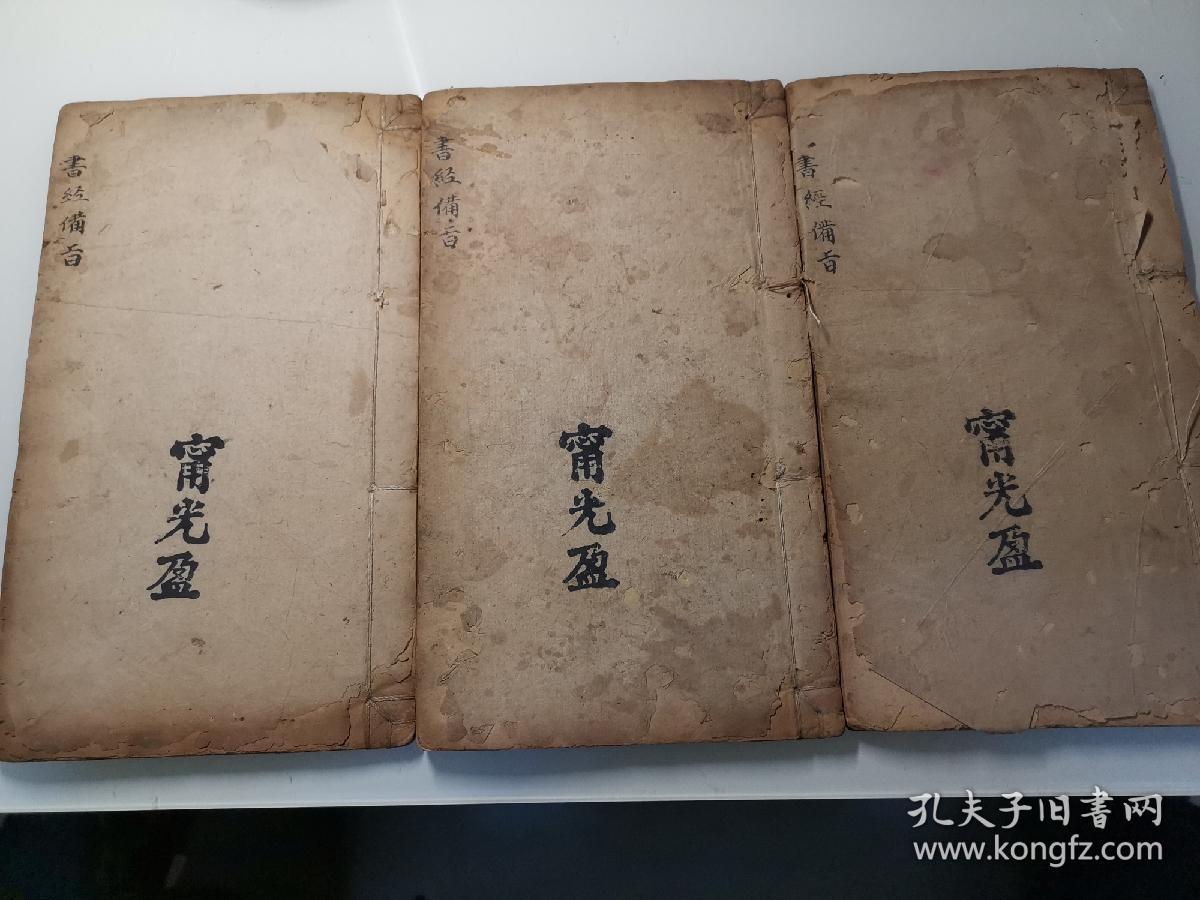 書経備旨
甯光盈
書経備旨
甯光盈
書經備旨
甯光盈
孔夫子旧书网
www.kongfz.com